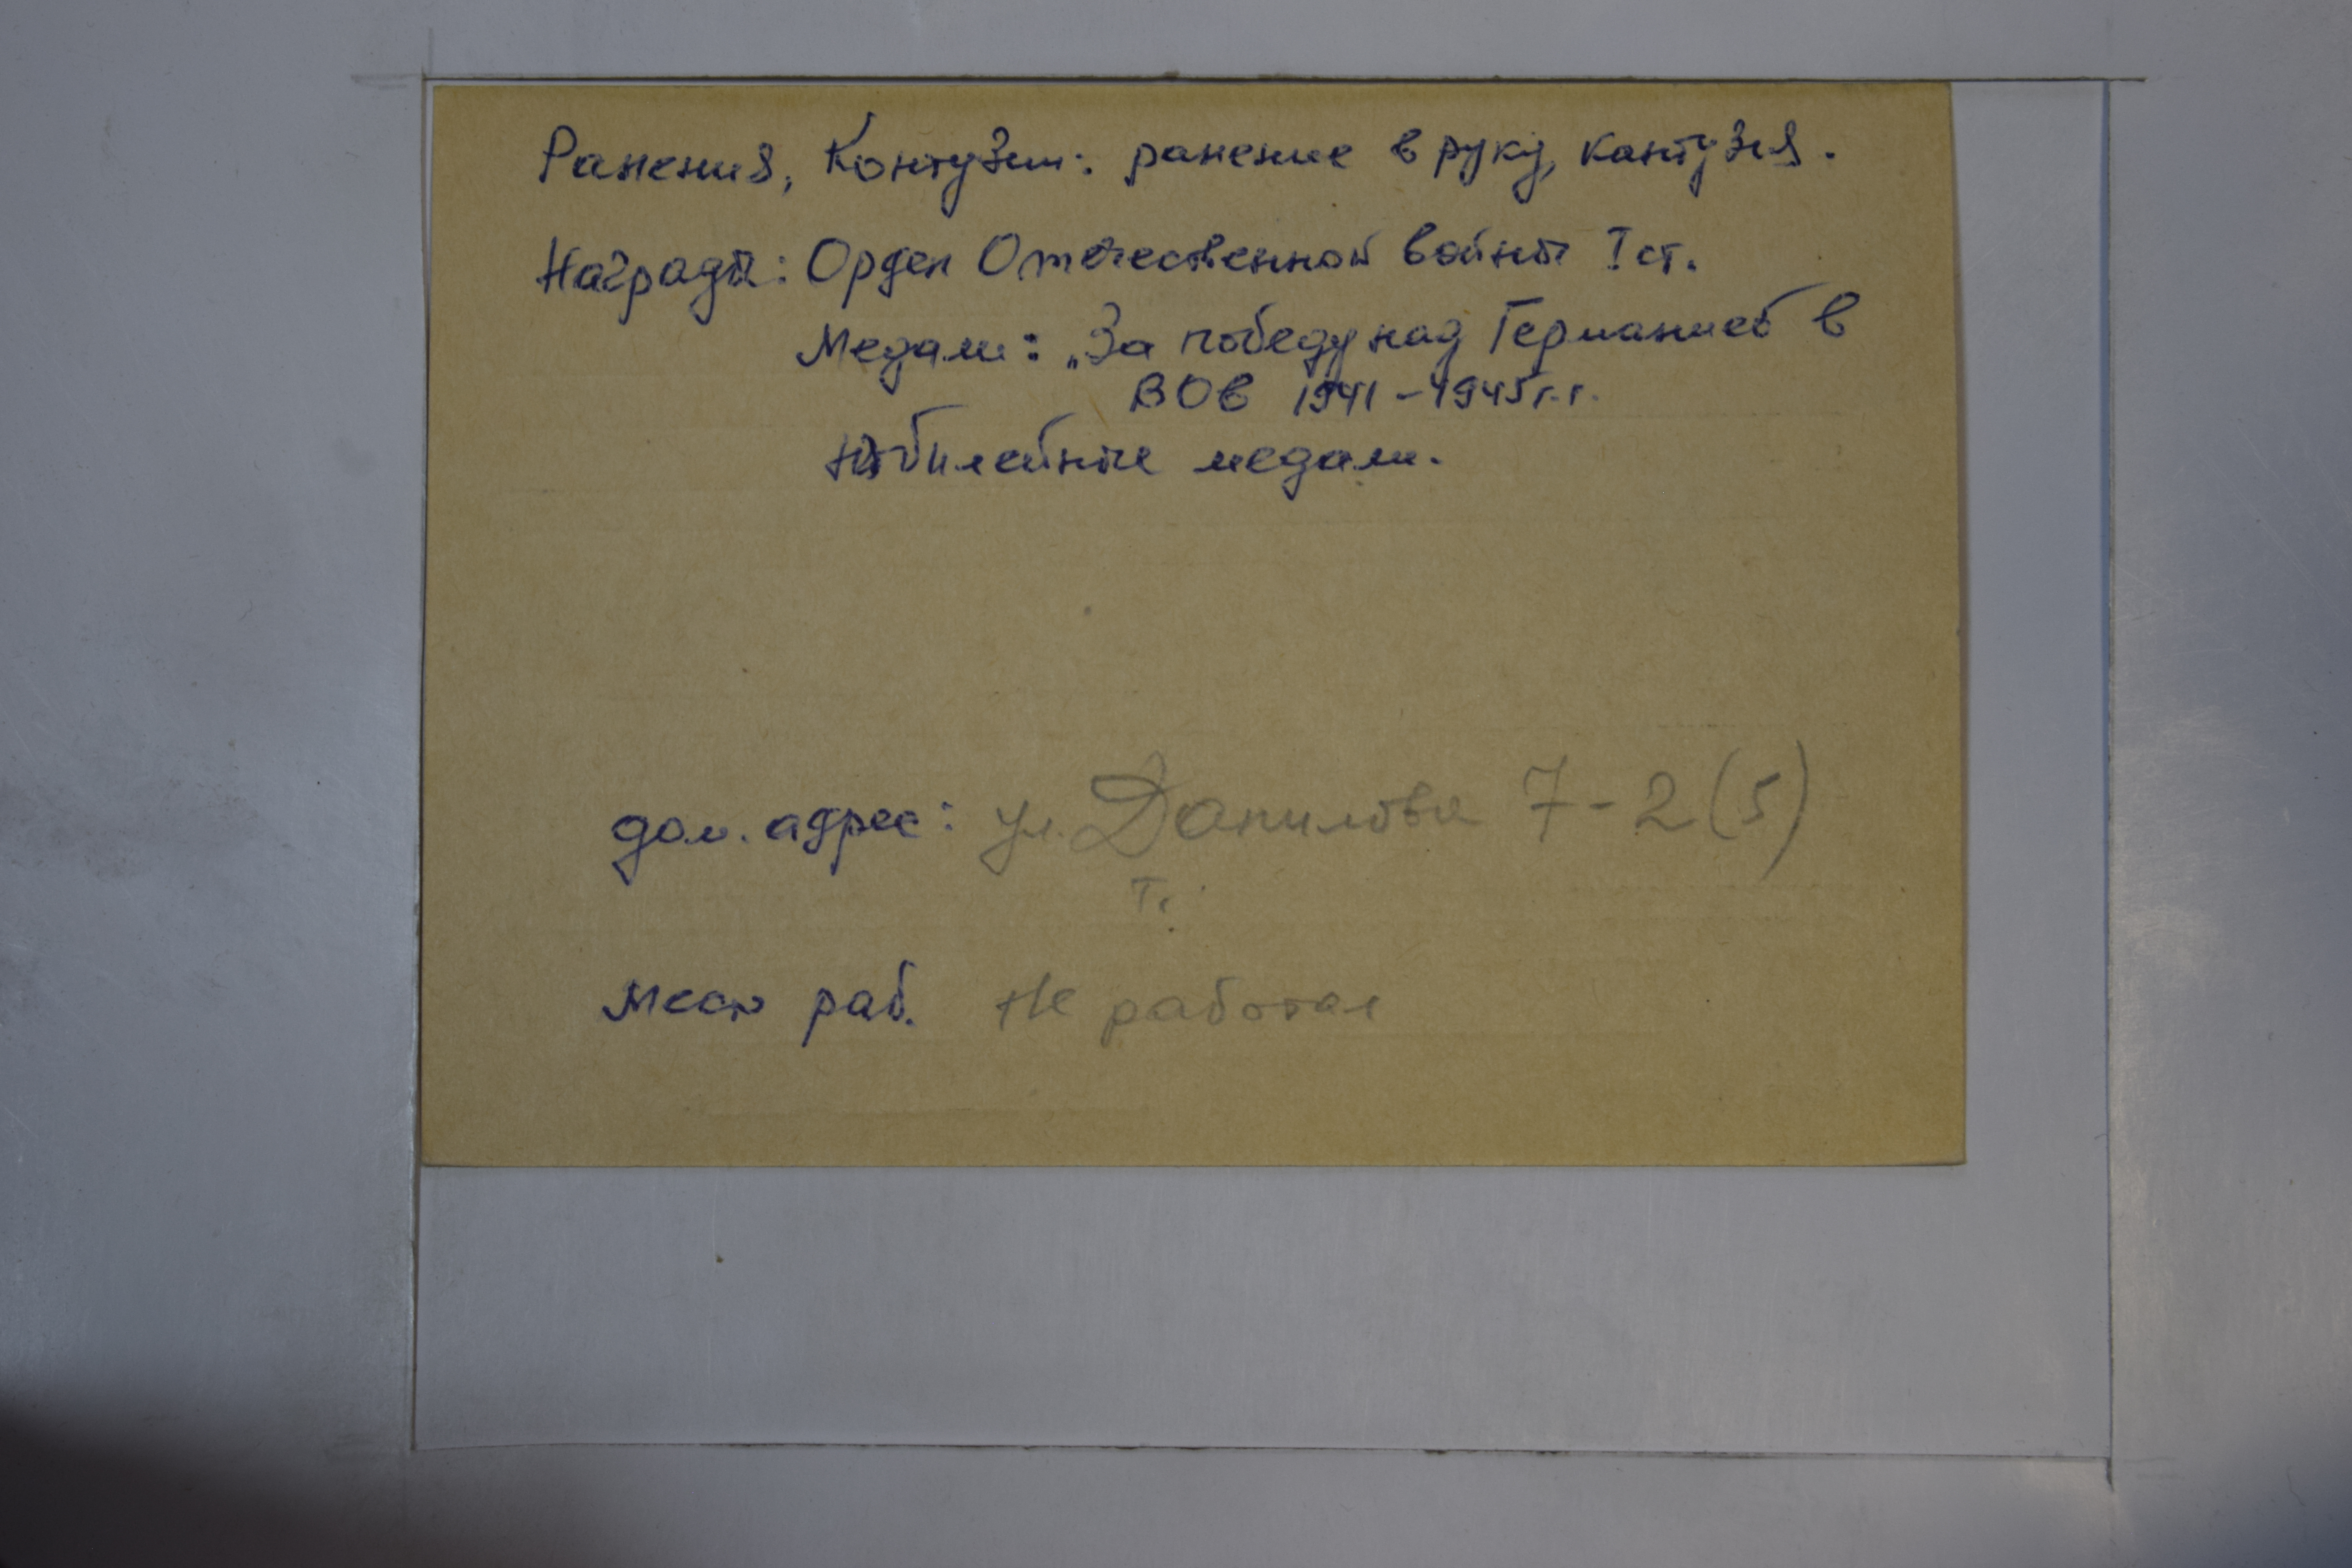 Ранения, Контузии: ранение в руку, кантузия.
Награды: Орден Отечественной войны I ст.
Медали: „За победу над Германией в
ВОВ 1941-1945г.г.
Юбилейные медали.
дом. адрес: ул. Данилова 7-2(5)
т.
Место раб. Не работал